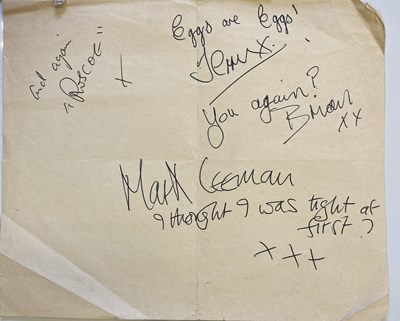 Eggs are Eggs!
X.
And again
"ROSCOE"
X
You again?
Brian
XX
Mark
I thought I was tight at
first?
XXX